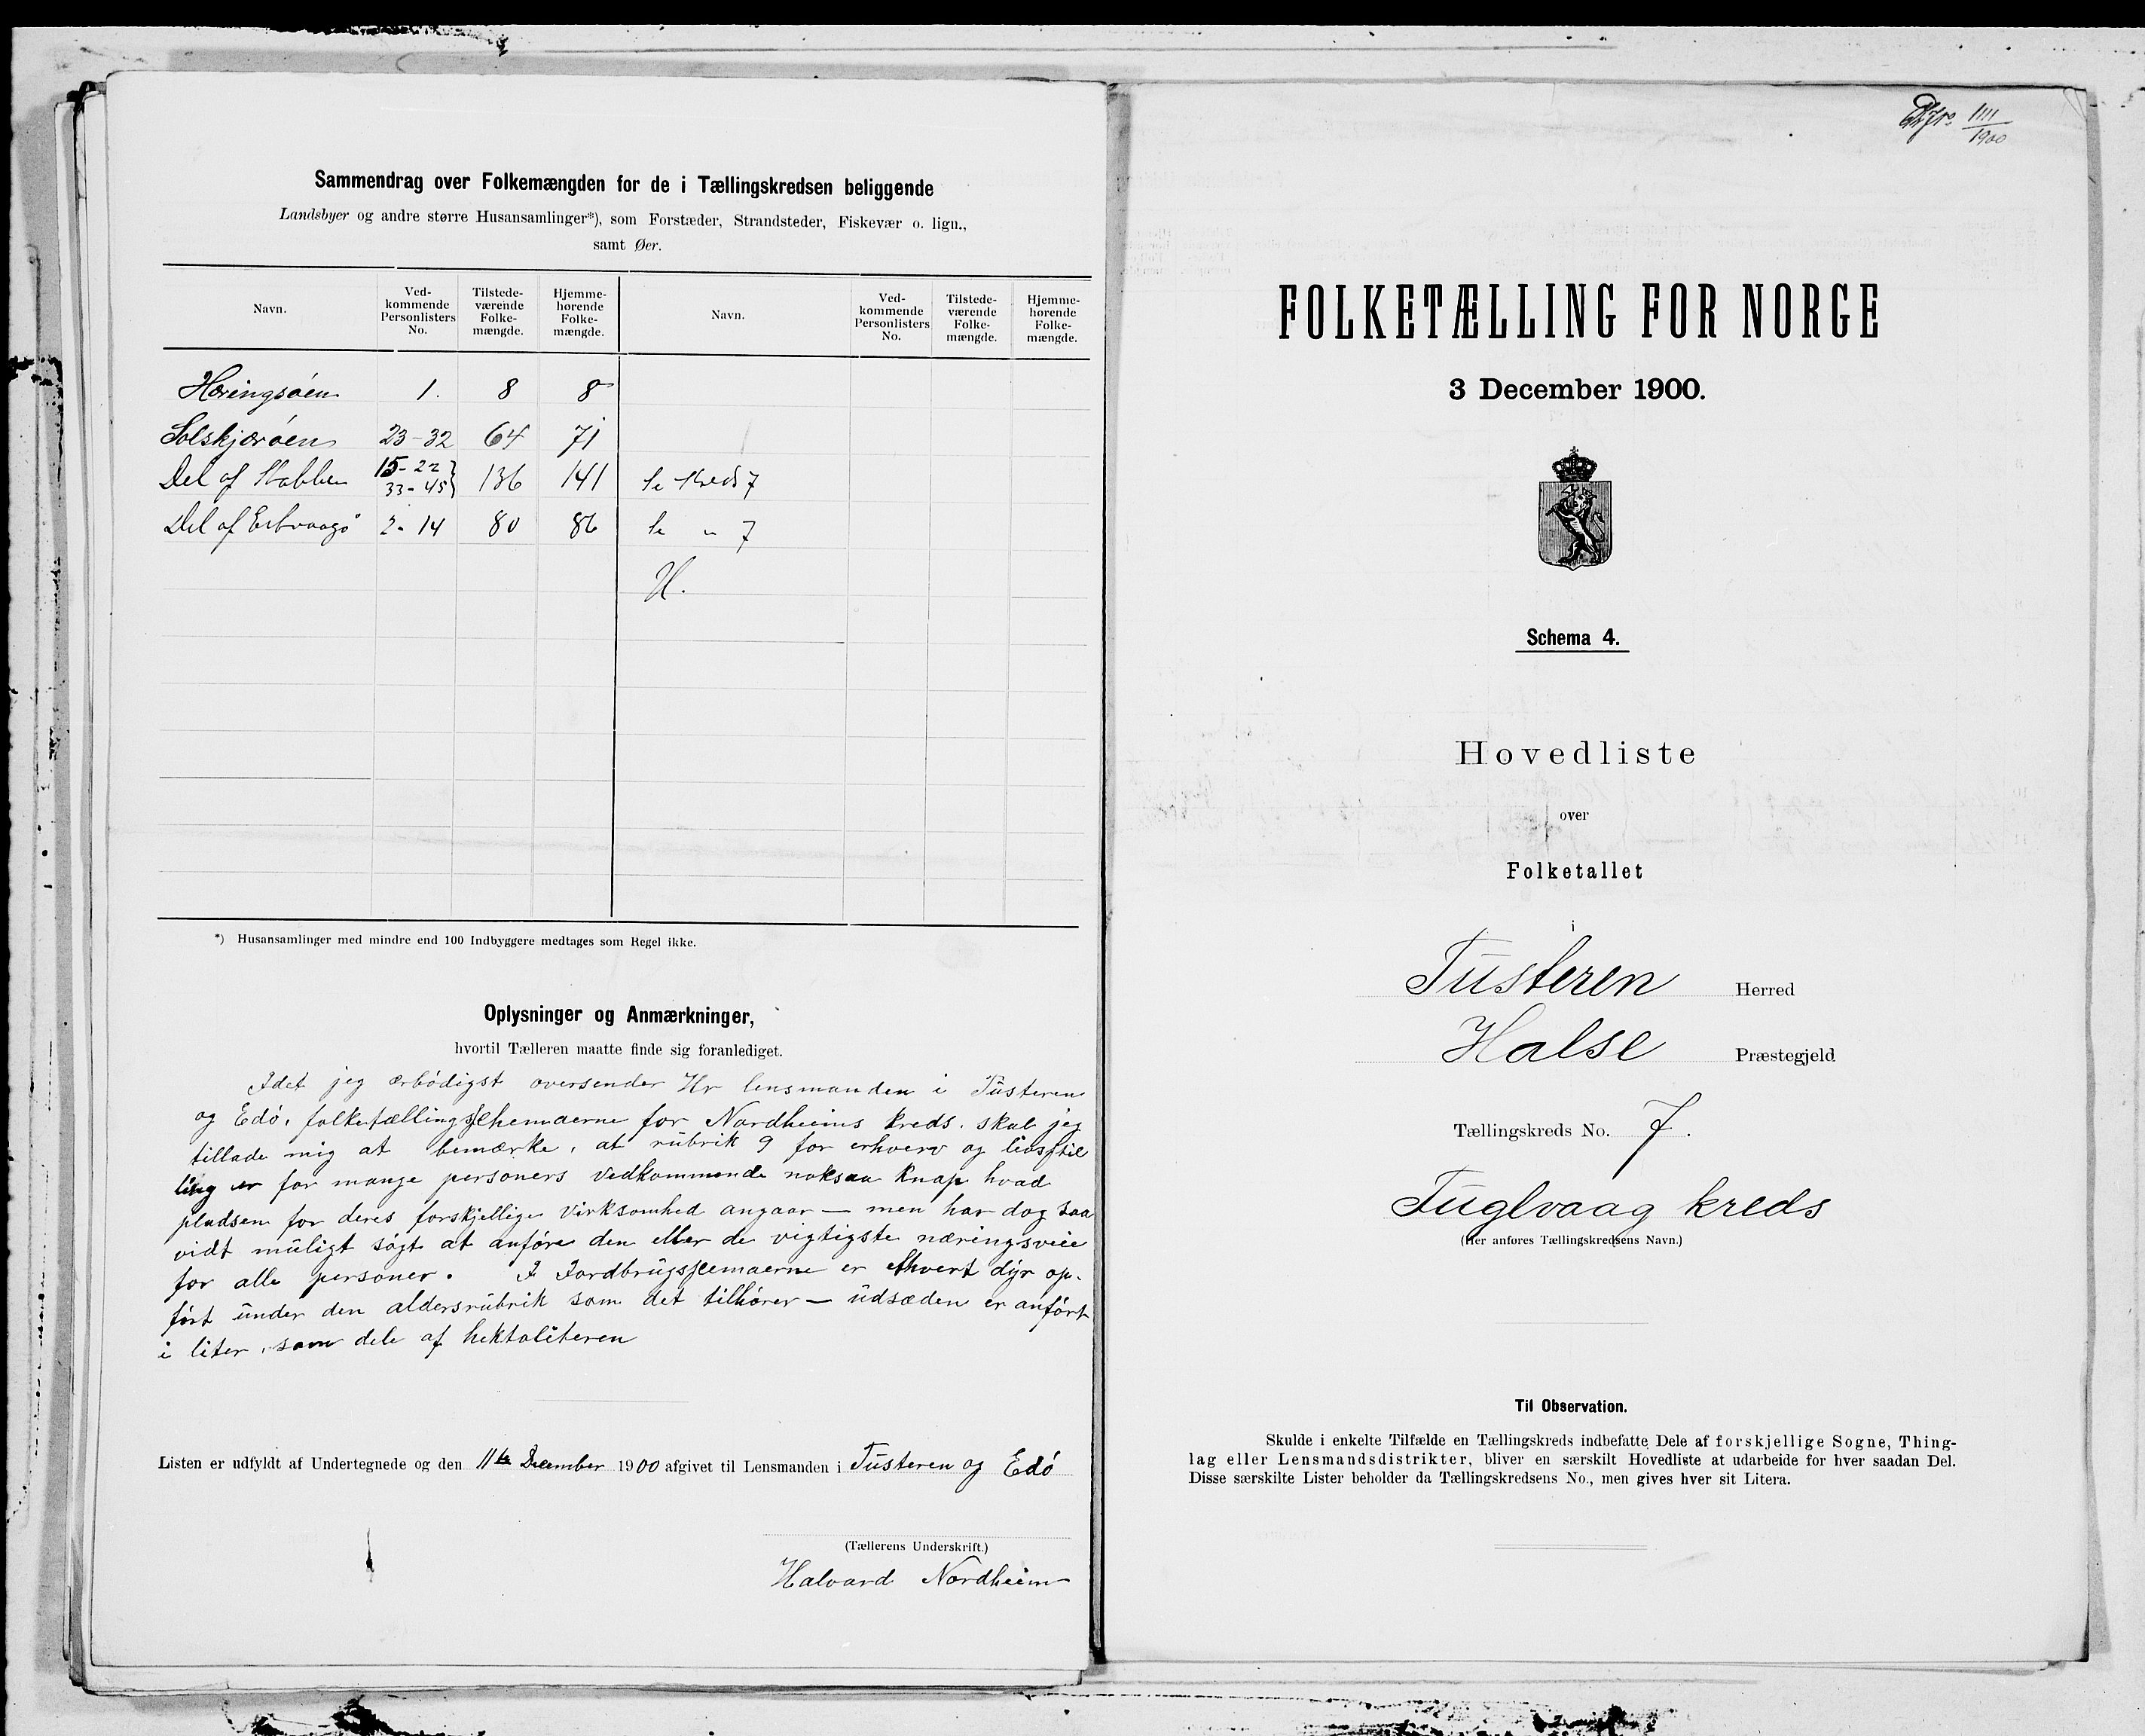 Sammendrag over Folkemængden for de i Tællingskredsen beliggende
Landsbyer og andre større Husansamlinger*), som Forstæder, Strandsteder, Fiskevær o. lign.,
samt Øer.
Navn. Ved-kommende Personlisters No. Tilstede-værende Folke-mængde. Hjemme-hørende Folke-mængde. Navn. Ved-kommende Personlisters No. Tilstede-værende Folke-mængde. Hjemme-hørende Folke-mængde.
Høringsøen 1. 8 8
Solskjærøen 23-32 64 71
Del af Stabben 15-22 33-45 136 141 Se Kreds 7
Del af Erkvaagø 2-14 80 86 Se " 7
H.
*) Husansamlinger med mindre end 100 Indbyggere medtages som Regel ikke.
Oplysninger og Anmærkninger,
hvortil Tælleren maatte finde sig foranlediget.
Idet jeg ærbödigst oversender Hr lensmanden i Tusteren
og Edö, folketællingsschemaerne for Nordheims kreds, skal jeg
tillade mig at bemærke, at rubrik 9 for erhverv og livsstil
ling er for mange personers vedkommende noksaa knap hvad
pladsen for deres forskjellige virksomhed angaar — men har dog saa
vidt muligt sögt at anföre den eller de vigtigste næringsveie
for alle personer. I Jordbrugsscemaerne er ethvert dyr op-
fört under den aldersrubrik som det tilhörer — udsæden er anfört
i liter, som dele af hektoliteren
Listen er udfyldt af Undertegnede og den 11te December 1900 afgivet til Lensmanden i Tusteren og Edö
(Tællerens Underskrift.)
Halvard Nordheim
1111/1900
FOLKETÆLLING FOR NORGE
3 December 1900.
Schema 4.
Hovedliste
over
Folketallet
i
Tusteren Herred
Halse Præstegjeld
Tællingskreds No. 7.
Fuglvaag kreds
(Her anføres Tællingskredsens Navn.)
Til Observation.
Skulde i enkelte Tilfælde en Tællingskreds indbefatte Dele af forskjellige Sogne, Thing-
lag eller Lensmandsdistrikter, bliver en særskilt Hovedliste at udarbeide for hver saadan Del.
Disse særskilte Lister beholder da Tællingskredsens No., men gives hver sit Litera.